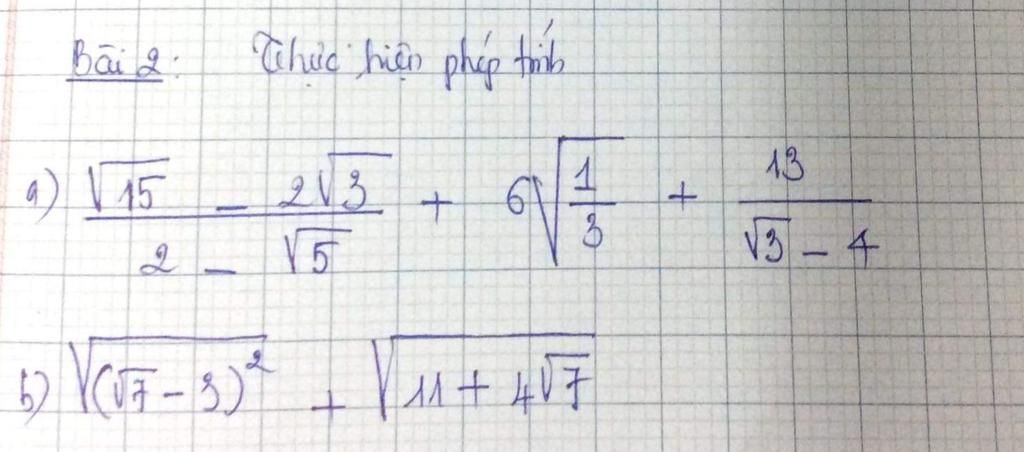 Bài 2: Thực hiện phép tính
a) \frac{\sqrt{15} - 2\sqrt{3}}{2 - \sqrt{5}} + 6\sqrt{\frac{1}{3}} + \frac{13}{\sqrt{3} - 4}
b) \sqrt{(\sqrt{7} - 3)^2} + \sqrt{11 + 4\sqrt{7}}